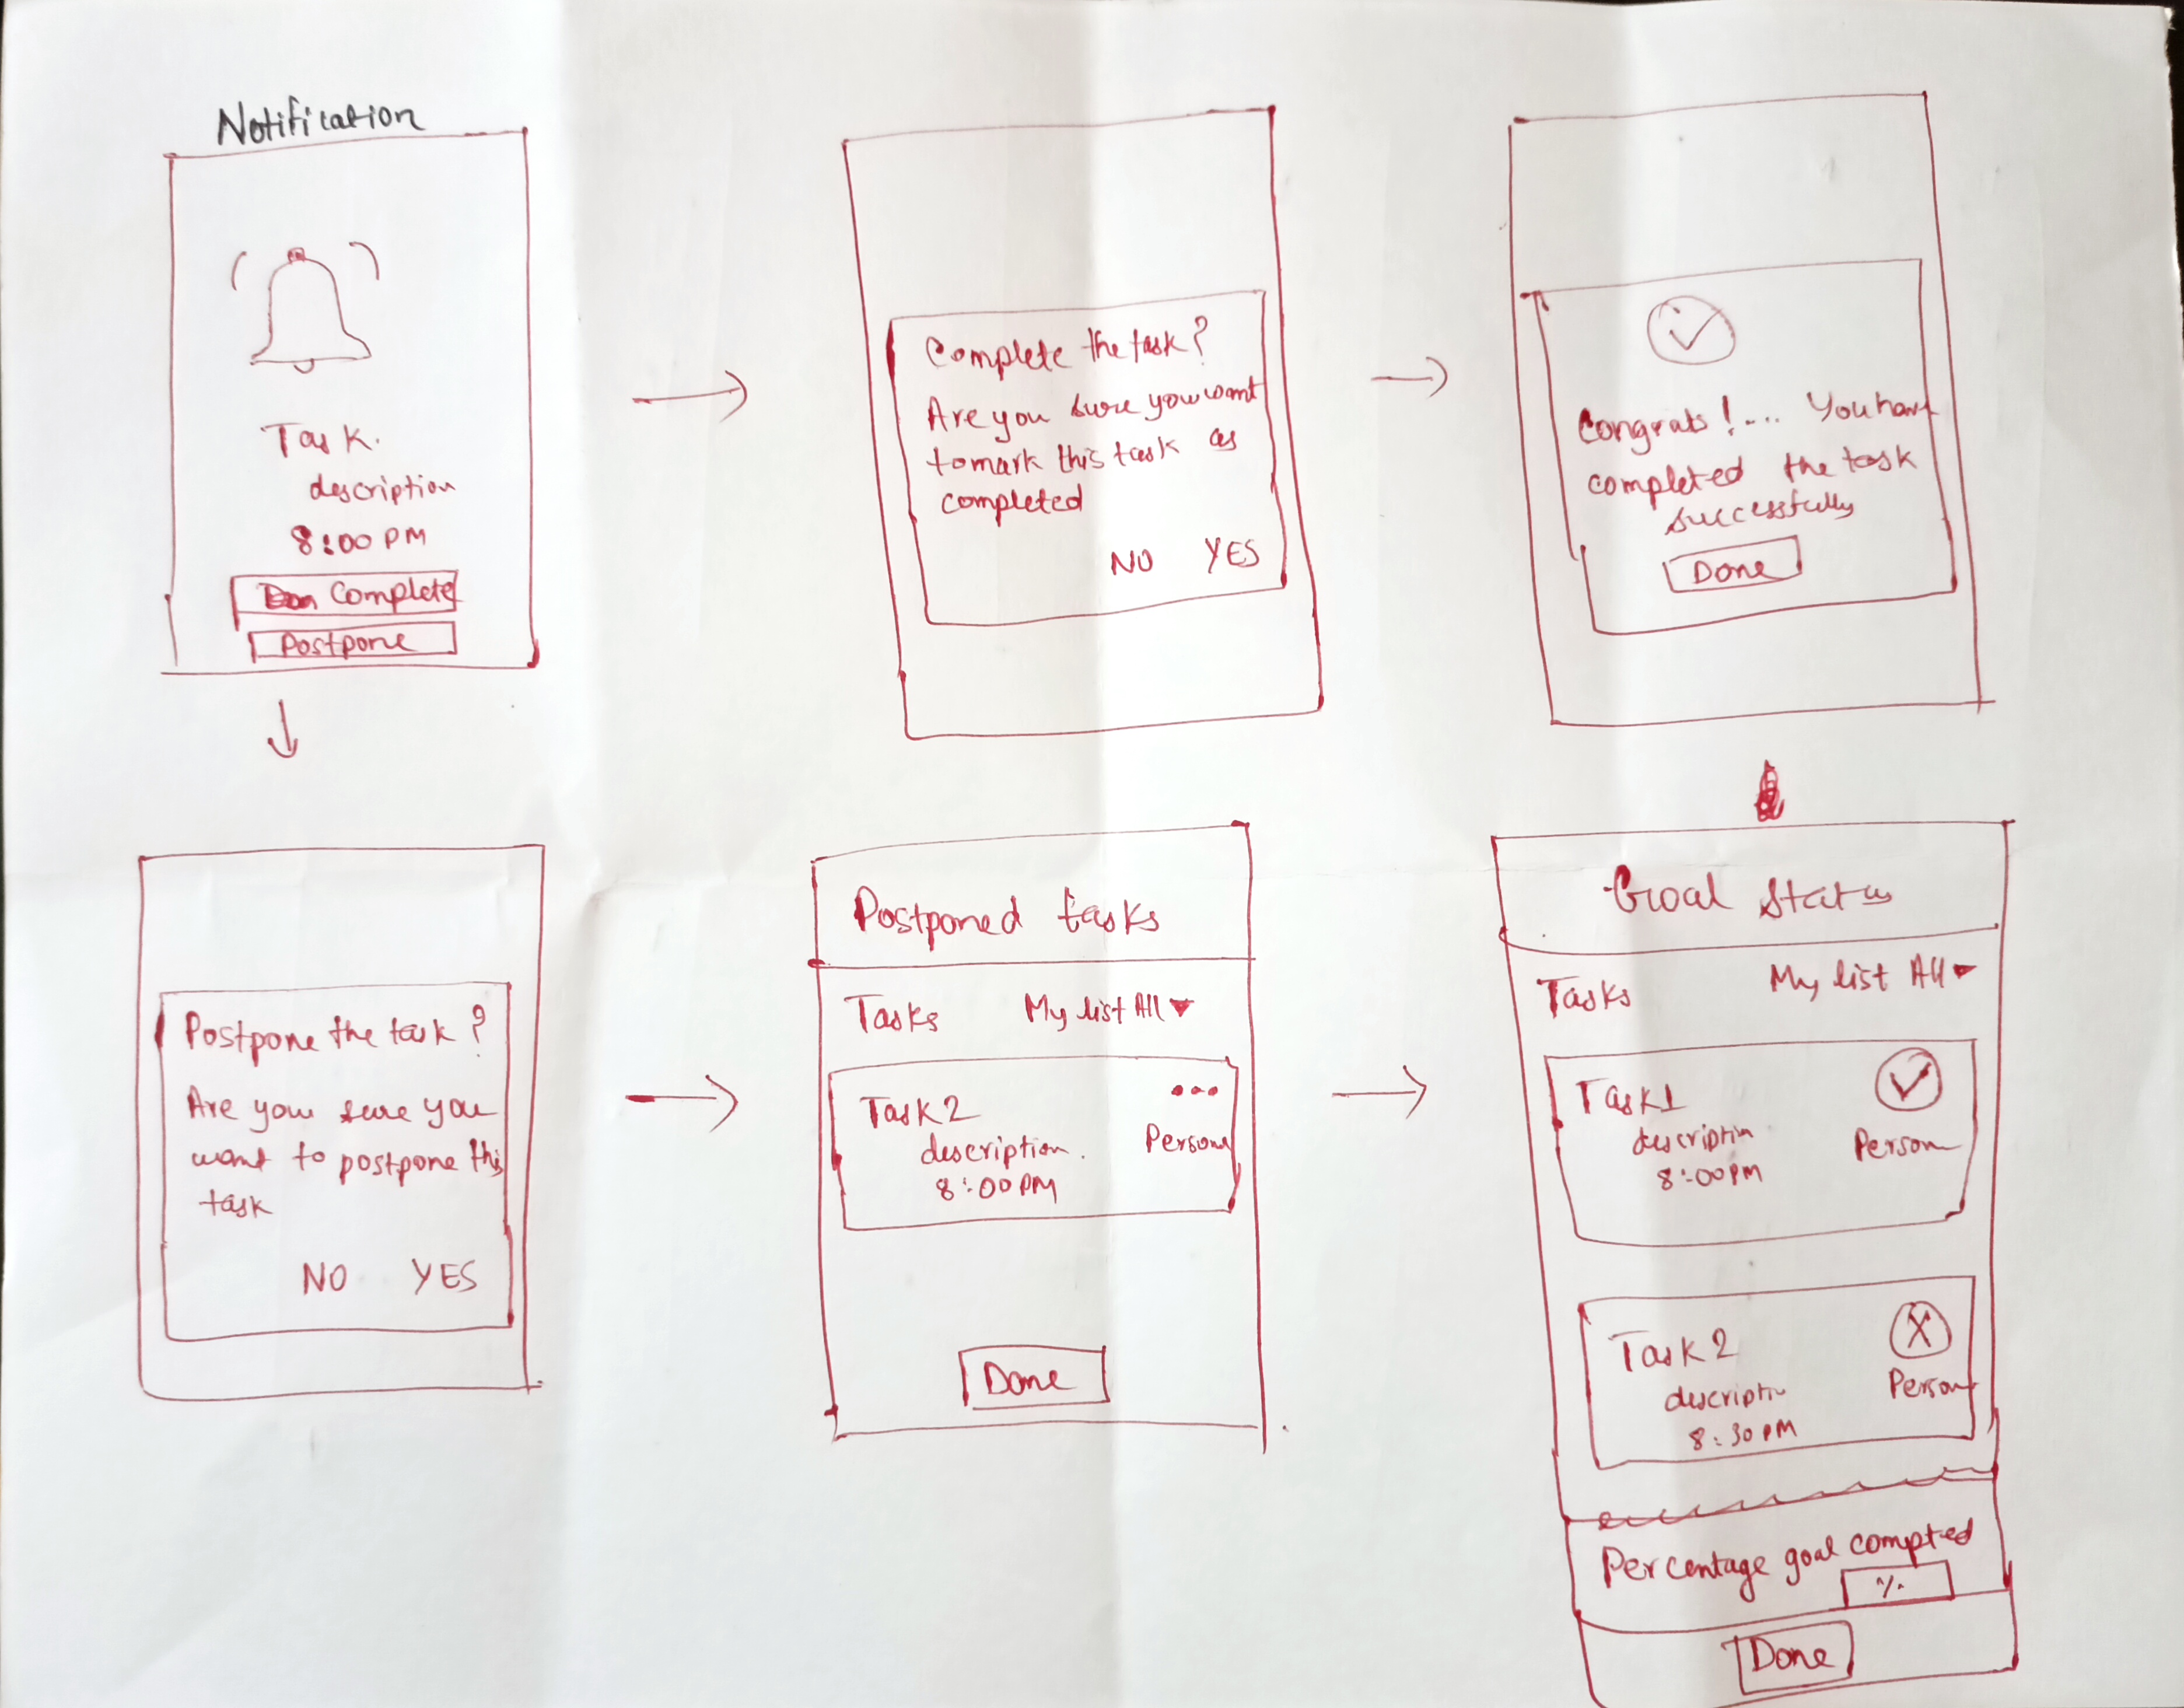 Notification
Task.
description
8:00 PM
Complete
Postpone
Complete the task?
Are you sure you want
to mark this task as
completed
NO YES
Congrats!.... You have
completed the task
successfully
Done
Postpone the task?
Are you sure you
want to postpone this
task
NO YES
Postponed tasks
Tasks My list All
Task 2
description.
8:00 PM
...
Person
Done
Goal Status
Tasks My list All
Task1
descriptin
8:00PM
Person
Task 2
descriptin
8:30 PM
Person
Percentage goal compted
%
Done